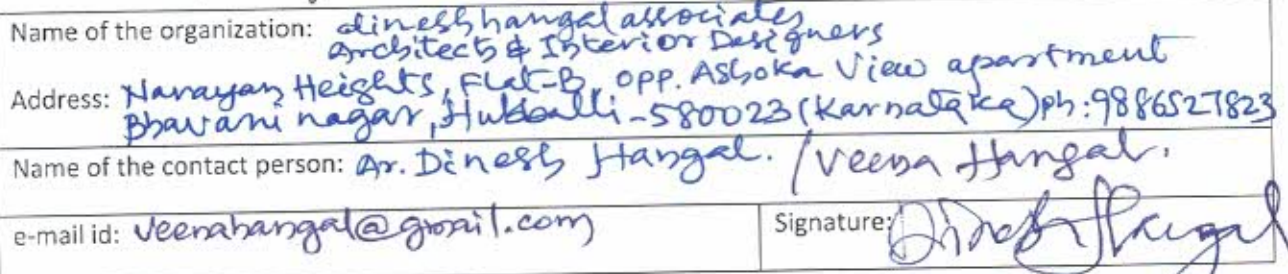 Name of the organization: dinesh hangal associates
Architects & Interior Designers
Address: Narayan Heights, Flat-B, opp. Ashoka View apartment
Bhavani nagar, Hubballi-580023 (Karnataka) ph: 9886527823
Name of the contact person: Ar. Dinesh Hangal. / Veena Hangal.
e-mail id: veenahangal@gmail.com
Signature: Dinesh Hangal